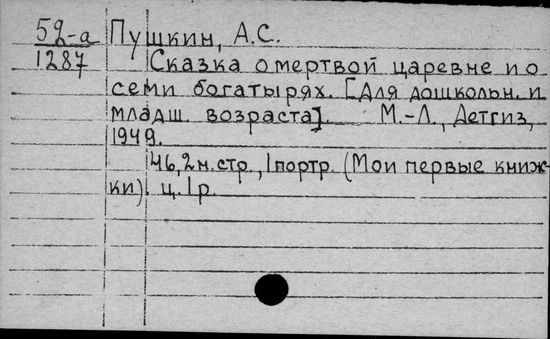 52-а Пушкин, А.С.
1287 Сказка о мертвой царевне и о
семи богатырях. [Для дошкольн. и
младш. возраста]. М.-Л., Детгиз,
1949.
46,2н.стр., 1портр. (Мои первые книж-
ки). ц. 1р.